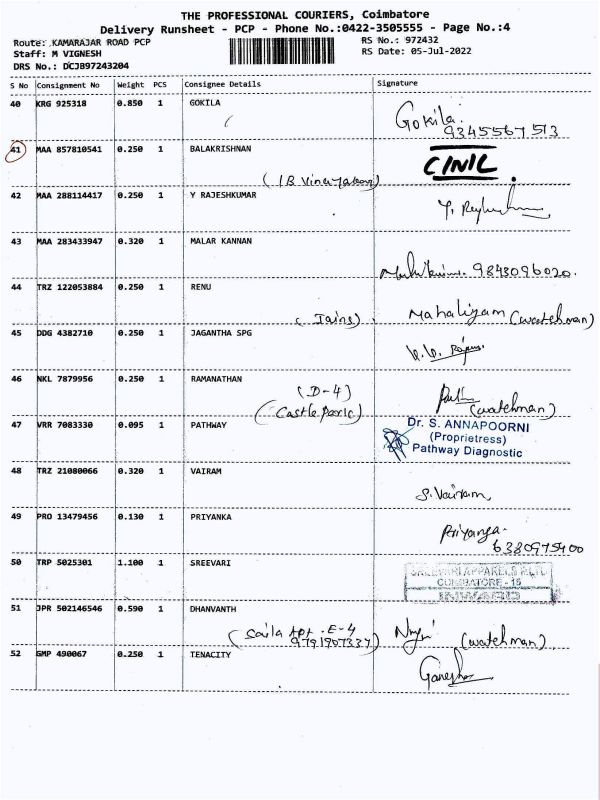 THE PROFESSIONAL COURIERS, Coimbatore
Delivery Runsheet - PCP - Phone No.:0422-3505555 - Page No.:4
Route: KAMARAJAR ROAD PCP
RS No.: 972432
Staff: M VIGNESH
RS Date: 05-Jul-2022
DRS No.: DCJB97243204
S No Consignment No Weight PCS Consignee Details Signature
40 KRG 925318 0.850 1 GOKILA
Gokila
9345567513
41 MAA 857810541 0.250 1 BALAKRISHNAN
CINIL
42 MAA 288114417 0.250 1 Y RAJESHKUMAR
43 MAA 283433947 0.320 1 MALAR KANNAN
9843096020.
44 TRZ 122053884 0.250 1 RENU
(Jains) Mahaliyam (watchman)
45 DDG 4382710 0.250 1 JAGANTHA SPG
46 NKL 7879956 0.250 1 RAMANATHAN
(D-4)
(Castle Paric) (watchman)
47 VRR 7083330 0.095 1 PATHWAY
Dr. S. ANNAPOORNI
(Proprietress)
Pathway Diagnostic
48 TRZ 21080066 0.320 1 VAIRAM
S. Vairam
49 PRO 13479456 0.130 1 PRIYANKA
Priyanga.
6380975400
50 TRP 5025301 1.100 1 SREEVARI
COIMBATORE - 15
INWARD
51 JPR 502146546 0.590 1 DHANVANTH
E-4
9791907337) (watchman)
52 GMP 490067 0.250 1 TENACITY
Ganesh